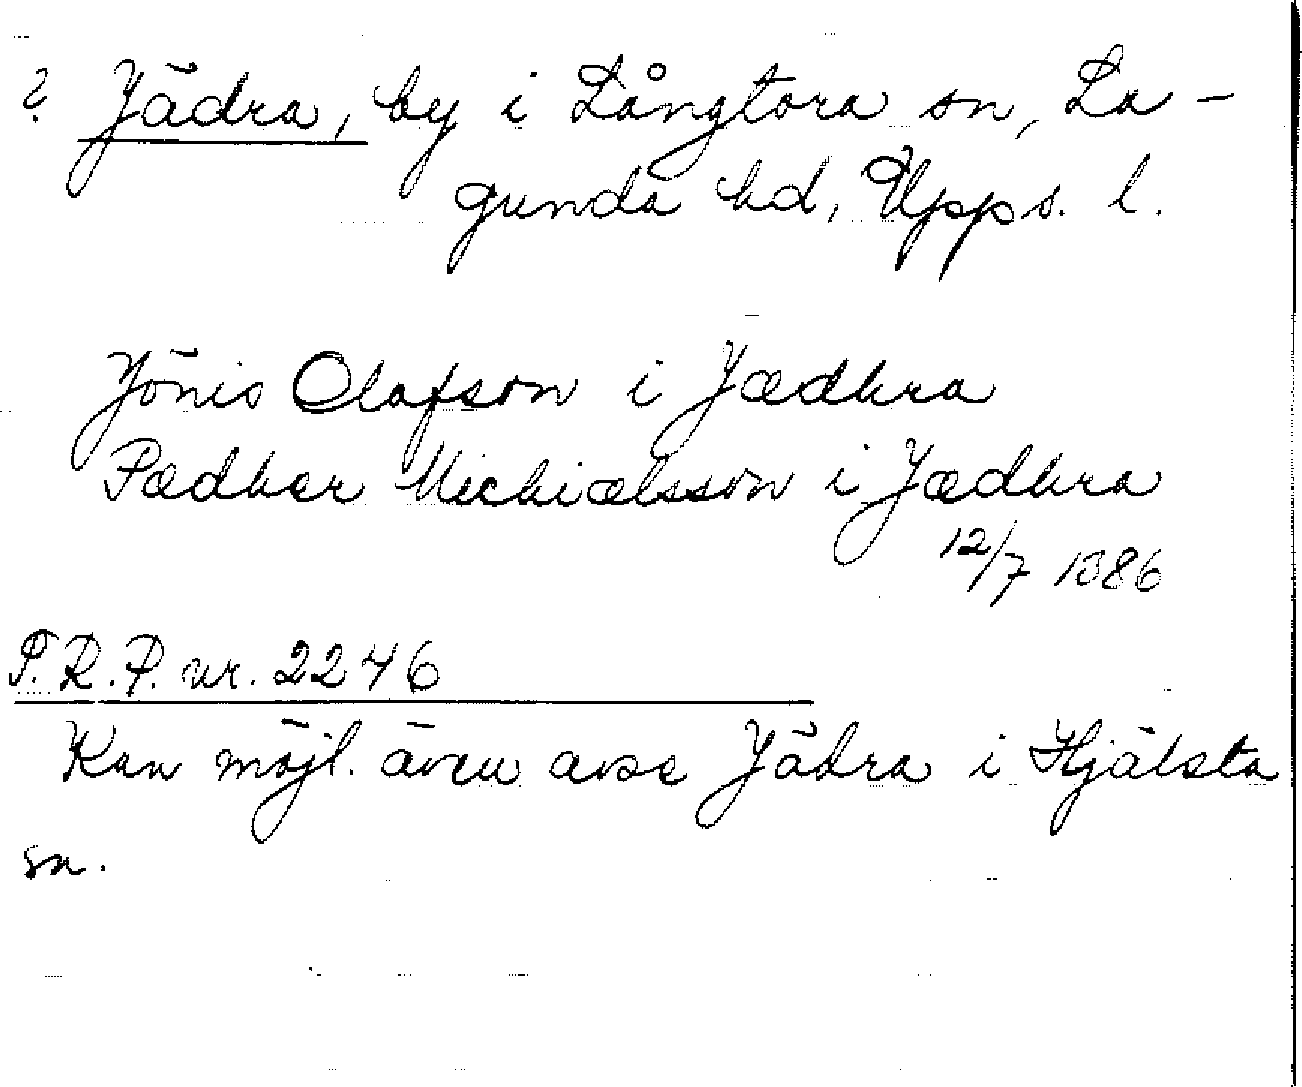 ? Jädra, by i Långtora sn, La-
gunda hd, Upps. l.
Jönis Olafson i Jædhra
Pædhær Michiælsson i Jædhra
12/7 1386
P.R.P. nr. 2246
Kan möjl. även avse Jädra i Hjälsta
sn.